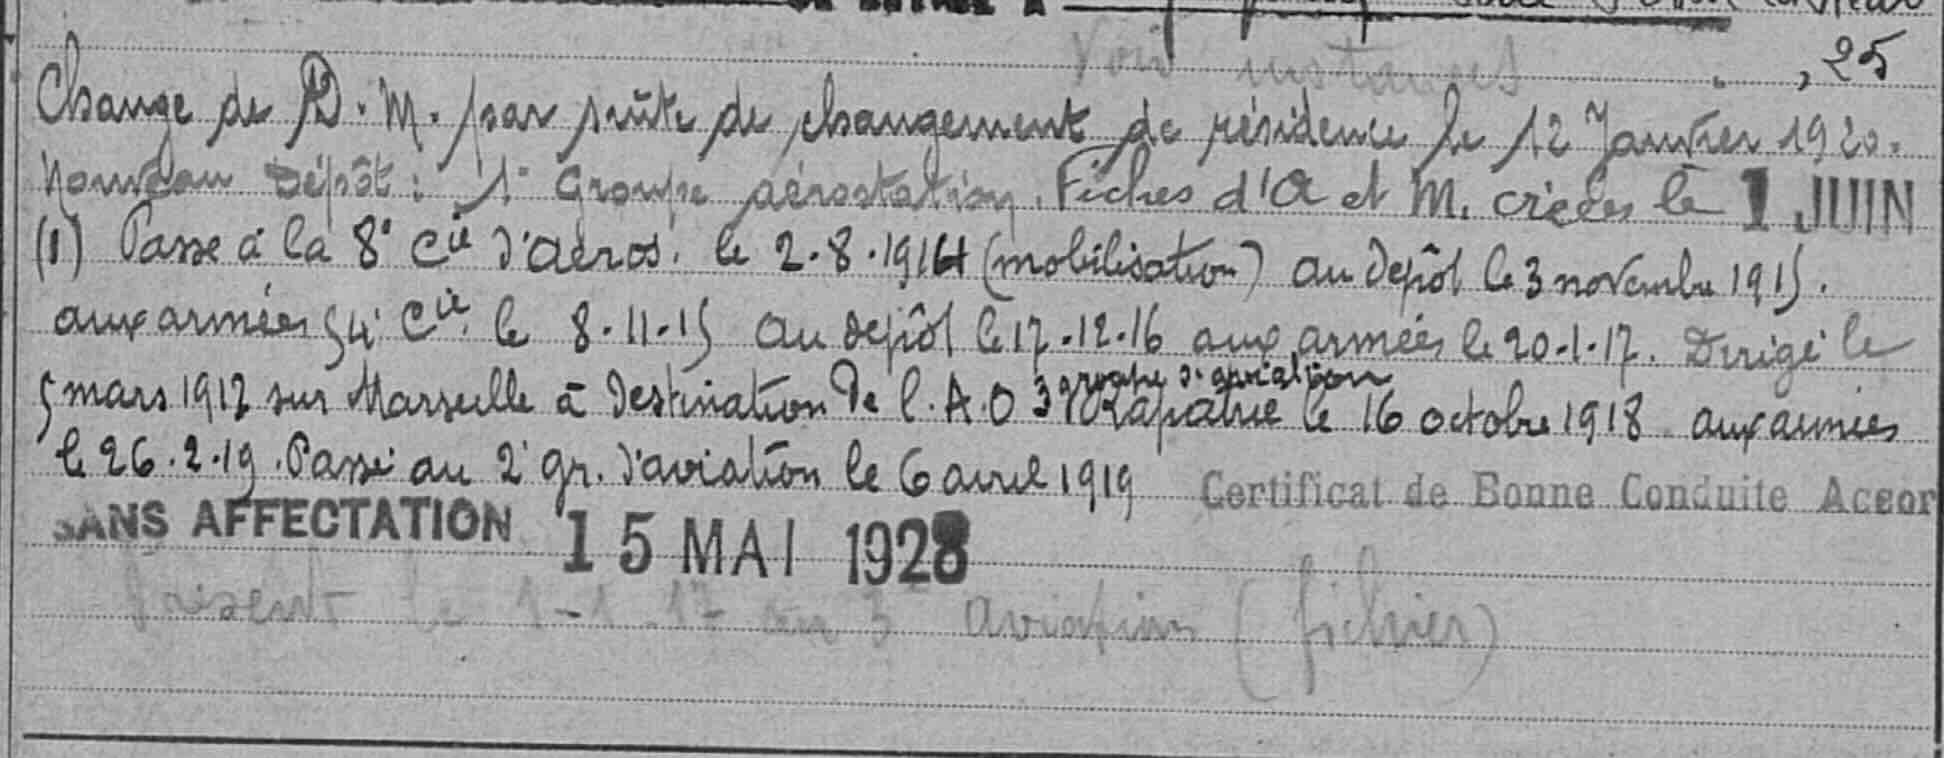 Voir instances , 25
Change de R.D.M. par suite de changement de résidence le 12 Janvier 1920.
Nouveau Dépôt : 1er Groupe aérostation. Fiches d'A et M. créées le 1 JUIN
(1) Passé à la 8e Cie d'Aéros. le 2.8.1914 (mobilisation) au dépôt le 3 novembre 1915.
aux armées 54e Cie le 8.11.15 au dépôt le 17.12.16 aux armées le 20.1.17. Dirigé le
3 groupe d'aviation
5 mars 1917 sur Marseille à destination de l'A.O rapatrié le 16 octobre 1918 aux armées
le 26.2.19. Passé au 2e gr. d'aviation le 6 avril 1919 Certificat de Bonne Conduite Accor
SANS AFFECTATION 15 MAI 1928
Présent le 1-1-17 au 3 aviation (fichier)